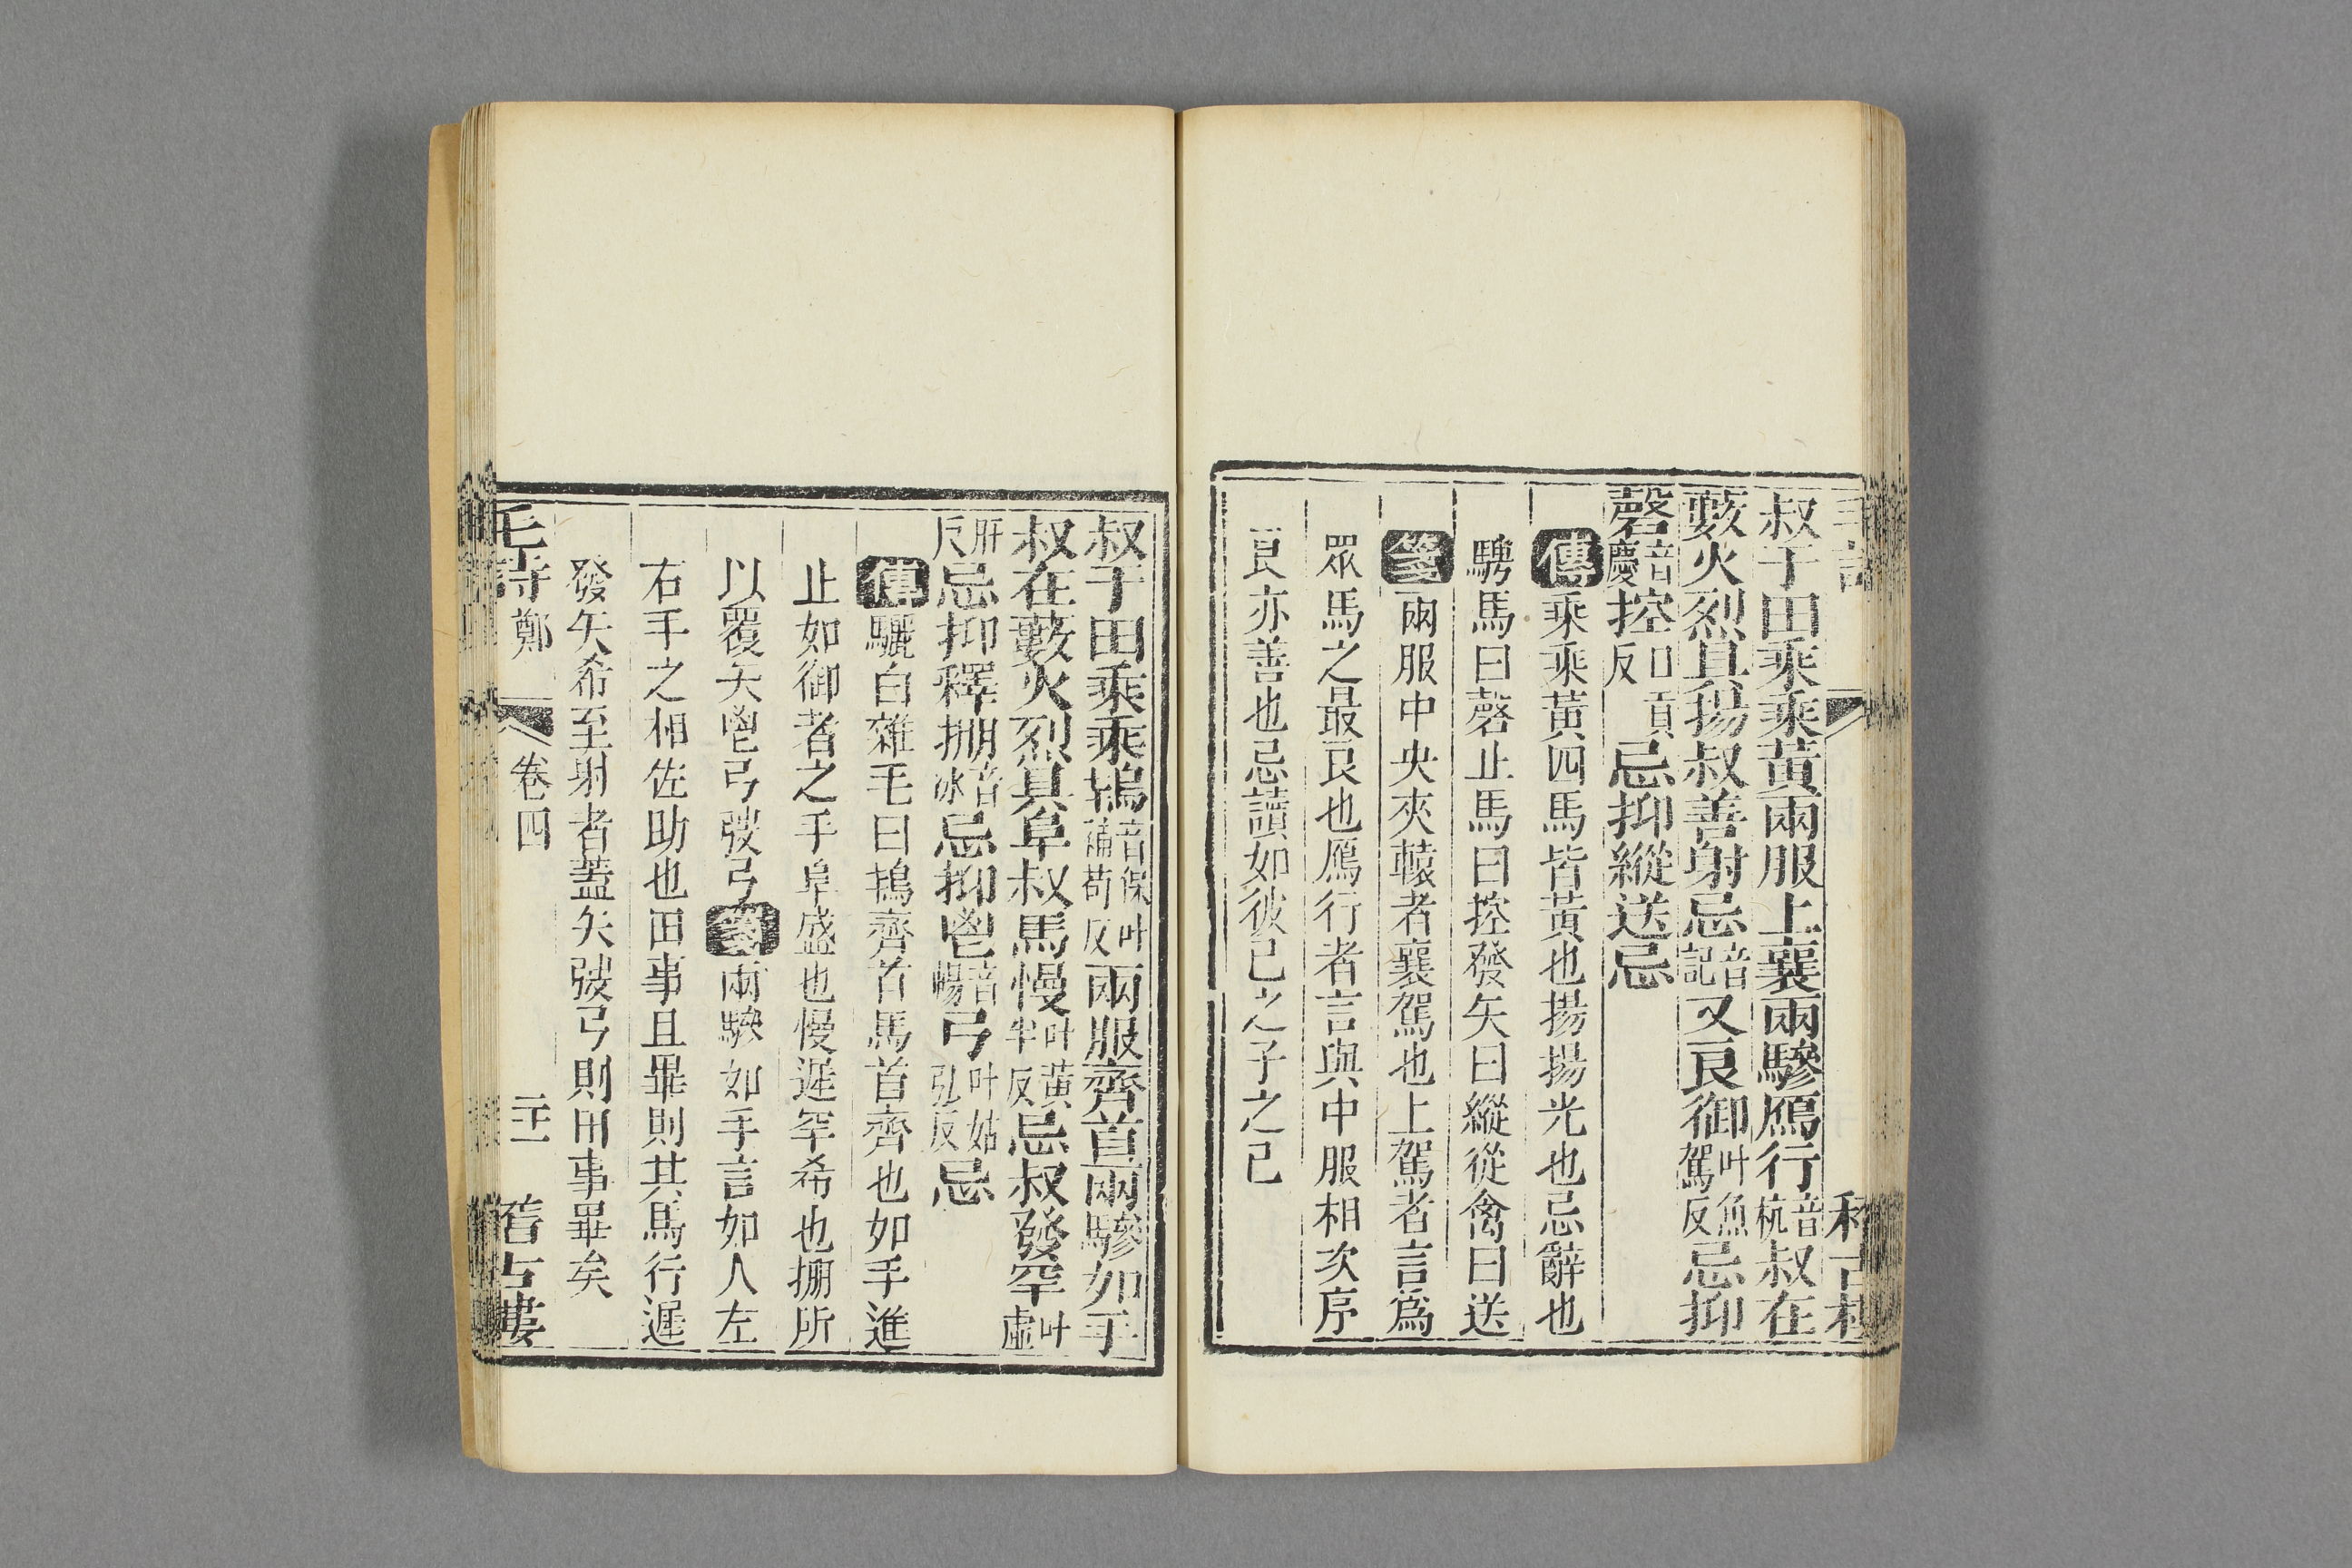 叔于田乘乘黃兩服上襄兩驂鴈行音杭叔在
藪火烈具揚叔善射忌音記又良御叶魚駕反忌抑
磬音慶控口貢反忌抑縱送忌
傳乘乘黃四馬皆黃也揚揚光也忌辭也
騁馬曰磬止馬曰控發矢曰縱從禽曰送
箋兩服中央夾轅者襄駕也上駕者言爲
眾馬之最良也鴈行者言與中服相次序
良亦善也忌讀如彼己之子之己
叔于田乘乘鴇音保叶補苟反兩服齊首兩驂如手
叔在藪火烈具阜叔馬慢叶黃半反忌叔發罕叶虛
旰反忌抑釋掤音冰忌抑鬯音暢弓叶姑弘反忌
傳驪白雜毛曰鴇齊首馬首齊也如手進
止如御者之手阜盛也慢遲罕希也掤所
以覆矢鬯弓弢弓箋兩驂如手言如人左
右手之相佐助也田事且畢則其馬行遲
發矢希至射者蓋矢弢弓則田事畢矣
毛詩 鄭 卷四 二十一 稽古樓